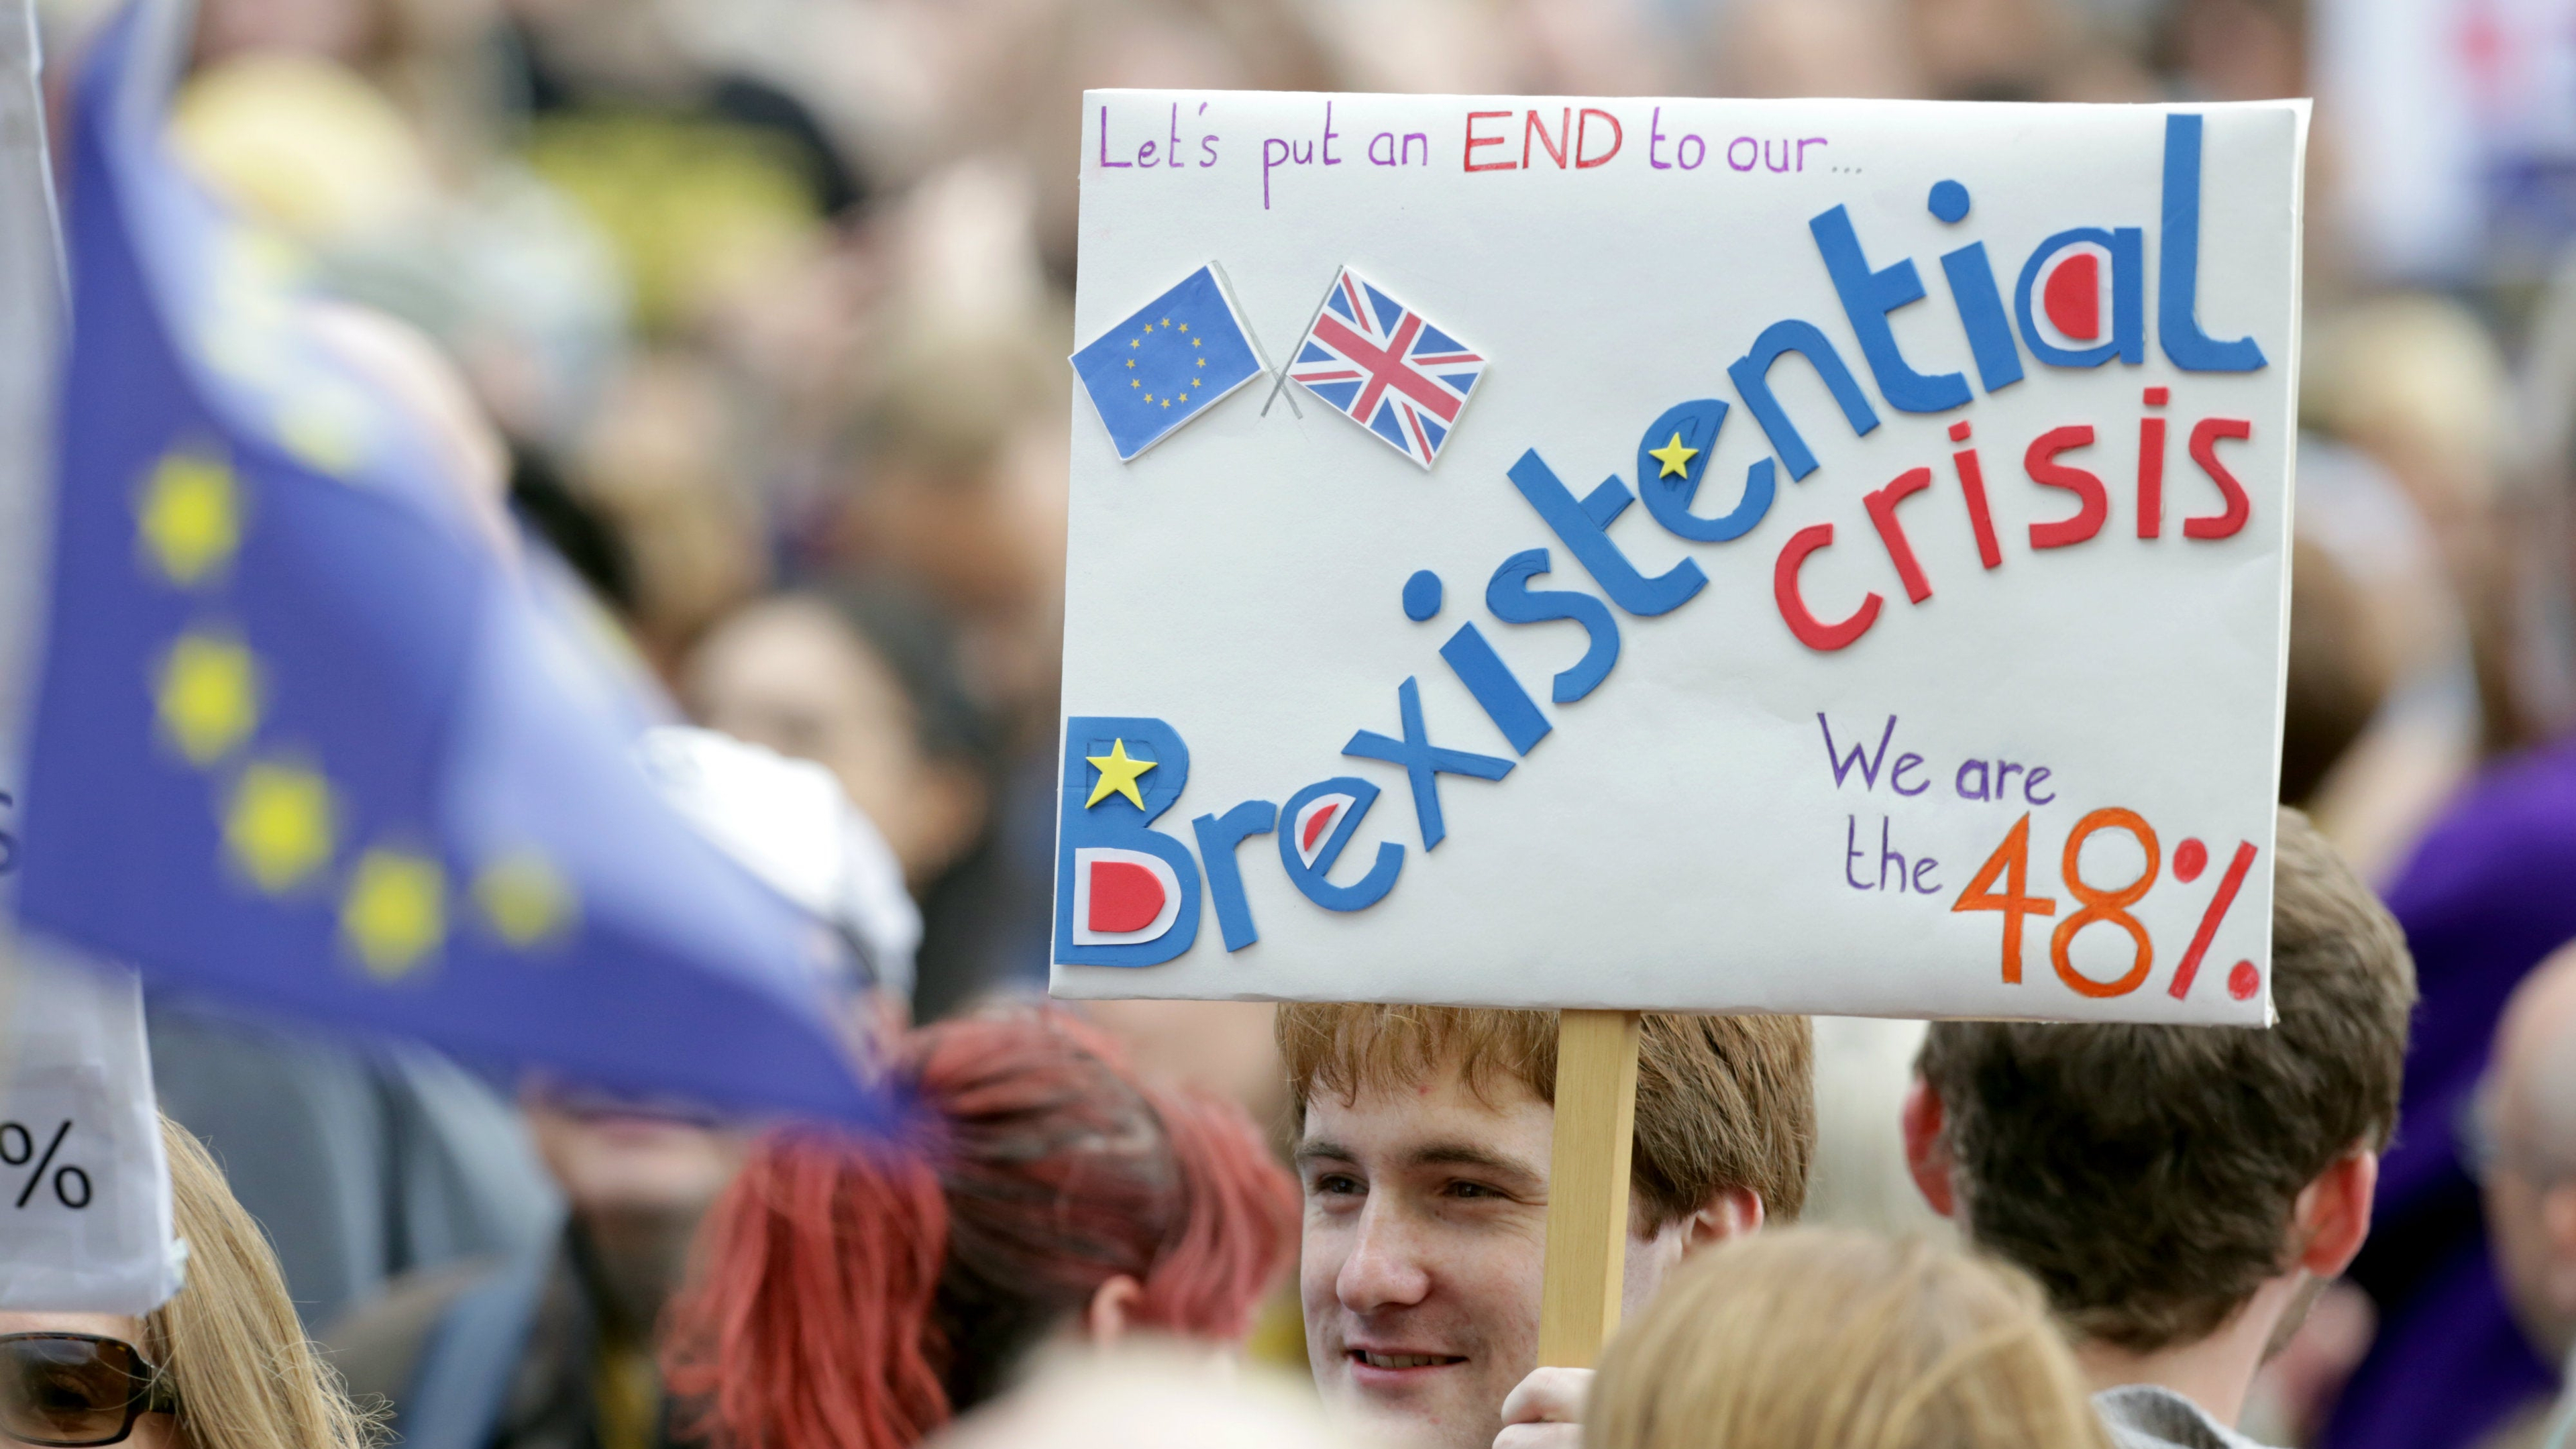 Let's put an END to our...
Brexistential
crisis
We are
the 48%
%